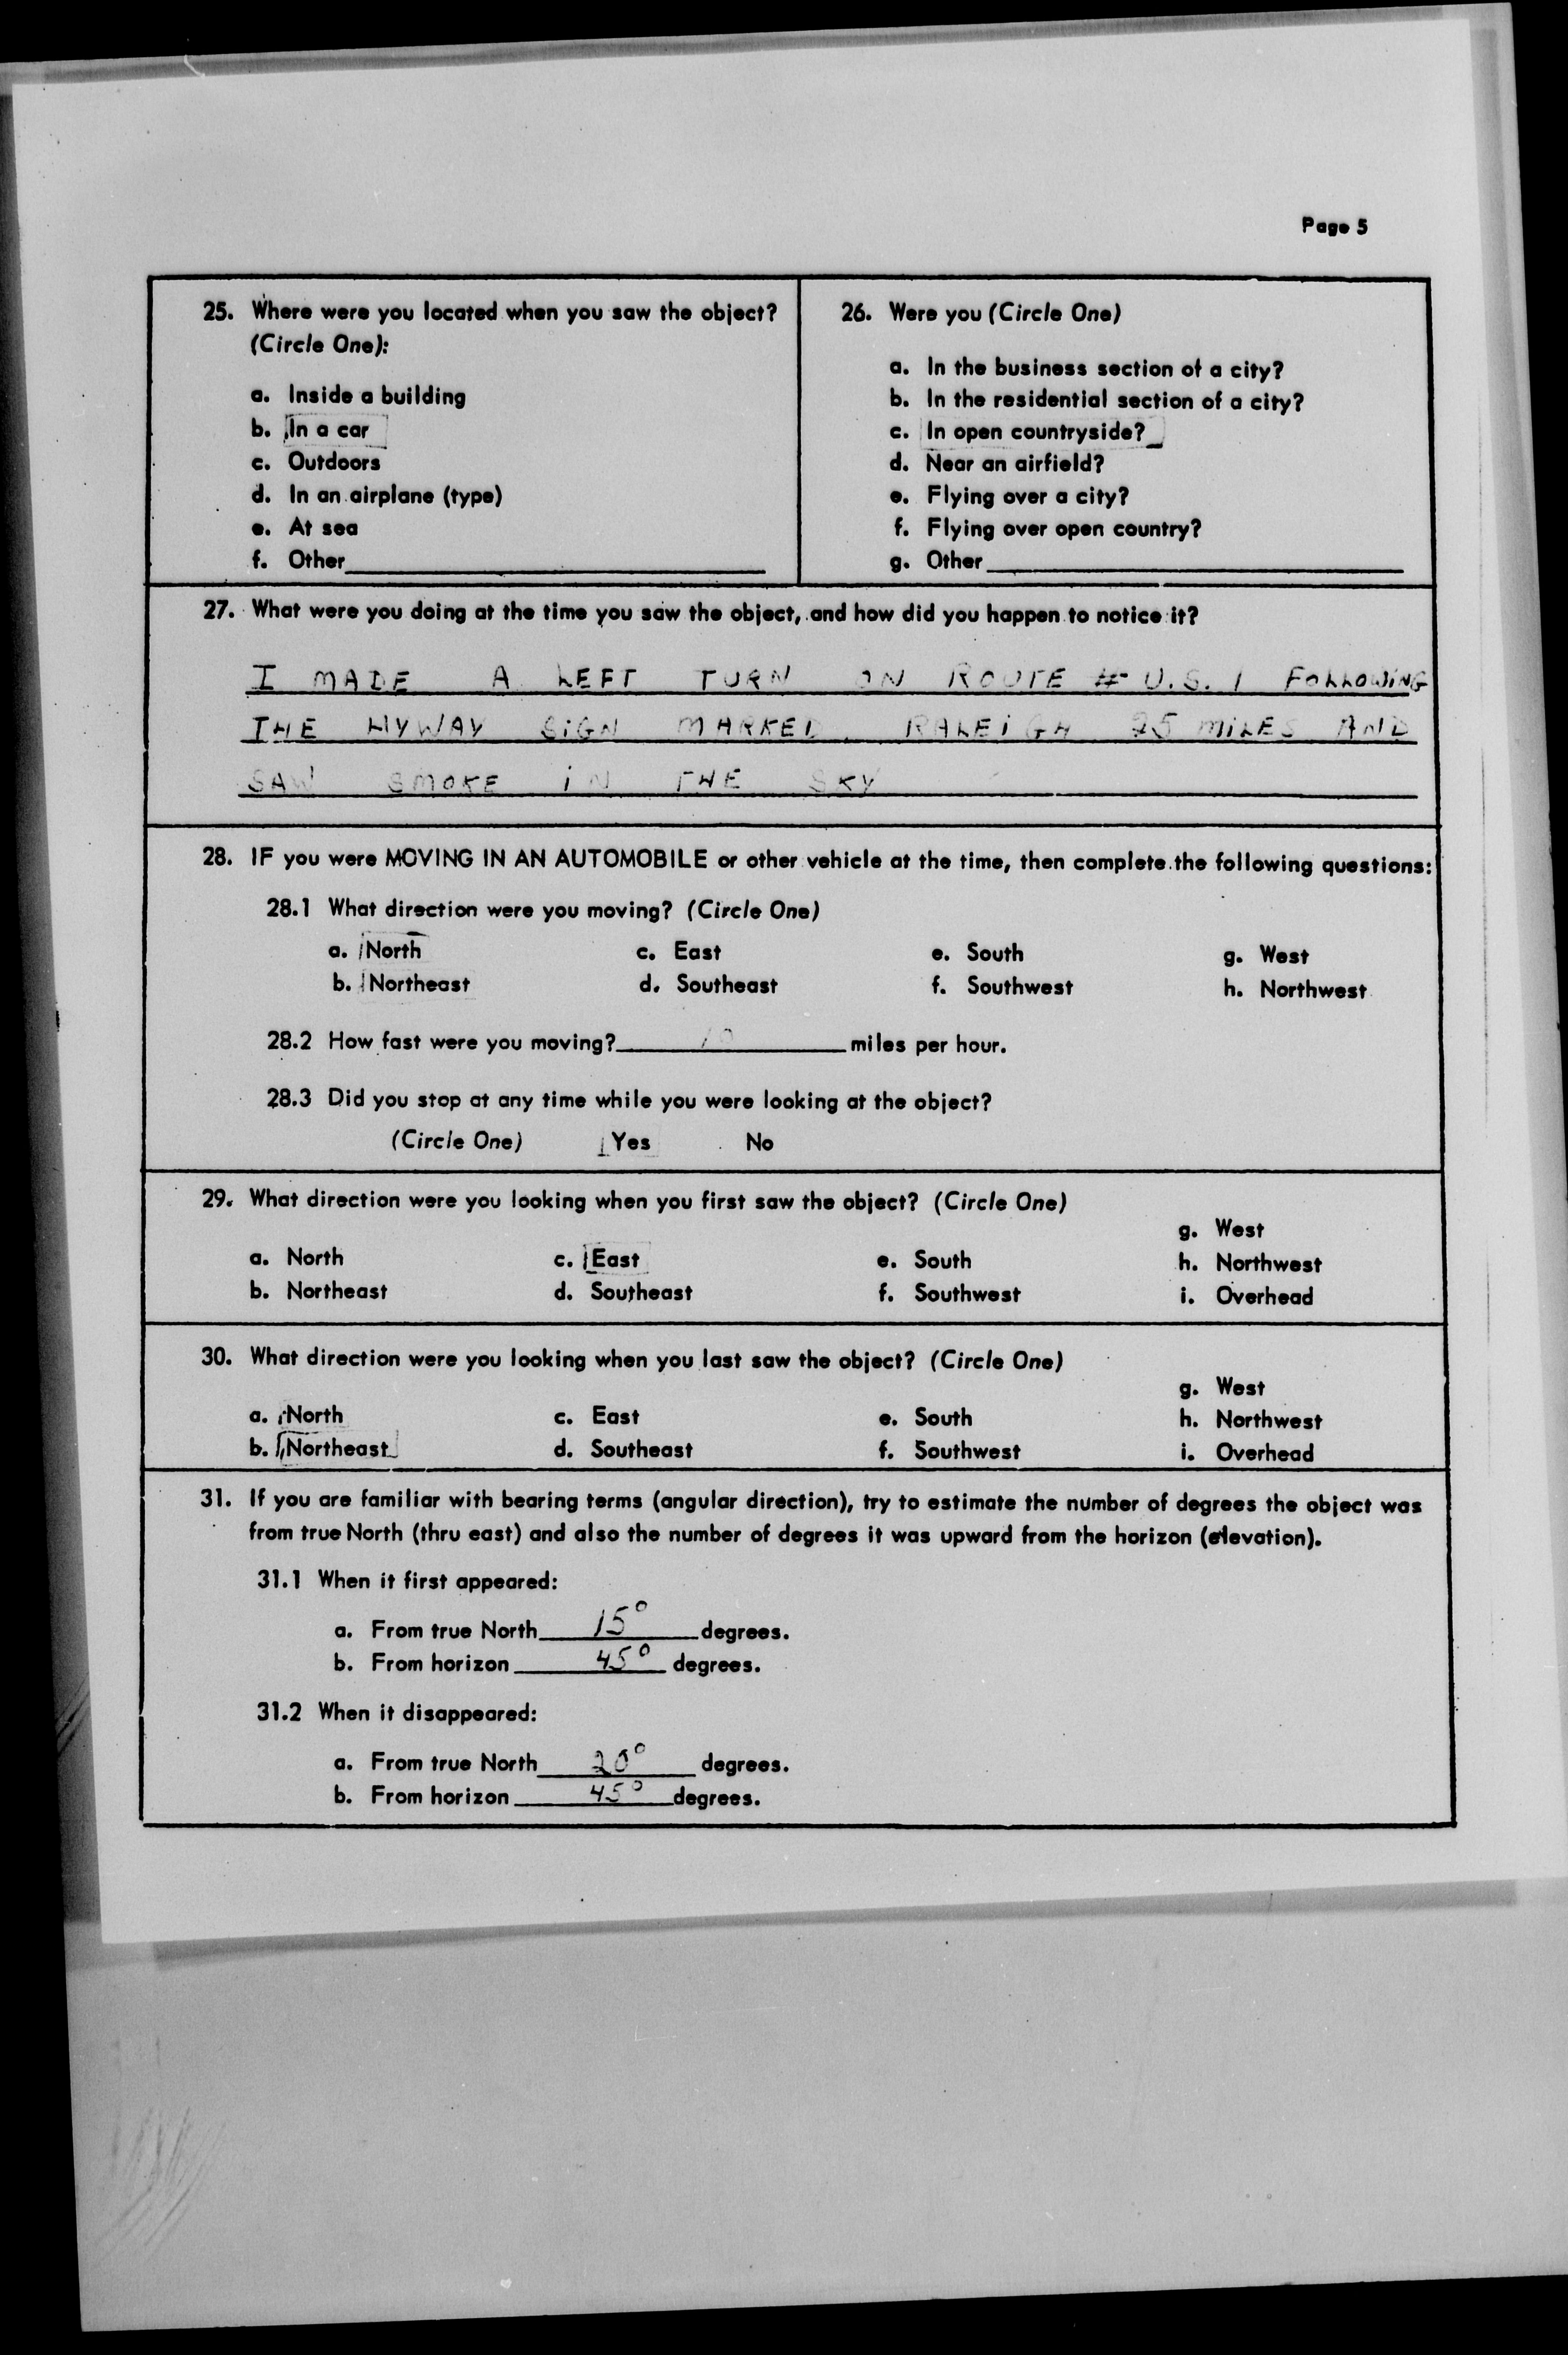 Page 5
25. Where were you located when you saw the object?
(Circle One):
a. Inside a building
b. In a car
c. Outdoors
d. In an airplane (type)
e. At sea
f. Other
26. Were you (Circle One)
a. In the business section of a city?
b. In the residential section of a city?
c. In open countryside?
d. Near an airfield?
e. Flying over a city?
f. Flying over open country?
g. Other
27. What were you doing at the time you saw the object, and how did you happen to notice it?
I MADE A LEFT TURN ON ROUTE # U.S. 1 FOLLOWING
THE HYWAY SIGN MARKED RALEIGH 25 MILES AND
SAW SMOKE IN THE SKY
28. IF you were MOVING IN AN AUTOMOBILE or other vehicle at the time, then complete the following questions:
28.1 What direction were you moving? (Circle One)
a. North c. East e. South g. West
b. Northeast d. Southeast f. Southwest h. Northwest
28.2 How fast were you moving? 10 miles per hour.
28.3 Did you stop at any time while you were looking at the object?
(Circle One) Yes No
29. What direction were you looking when you first saw the object? (Circle One)
g. West
a. North c. East e. South h. Northwest
b. Northeast d. Southeast f. Southwest i. Overhead
30. What direction were you looking when you last saw the object? (Circle One)
g. West
a. North c. East e. South h. Northwest
b. Northeast d. Southeast f. Southwest i. Overhead
31. If you are familiar with bearing terms (angular direction), try to estimate the number of degrees the object was
from true North (thru east) and also the number of degrees it was upward from the horizon (elevation).
31.1 When it first appeared:
a. From true North 15° degrees.
b. From horizon 45° degrees.
31.2 When it disappeared:
a. From true North 20° degrees.
b. From horizon 45° degrees.